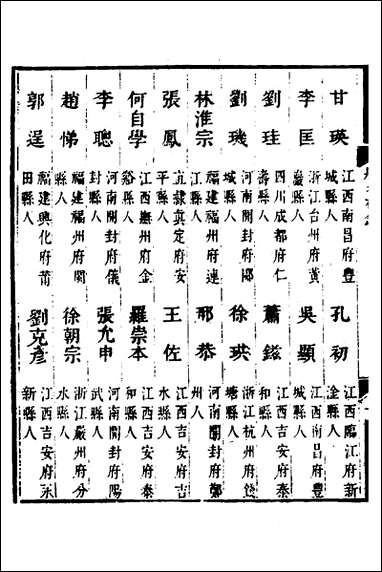 甘瑛 江西南昌府豐城縣人 孔初 江西臨江府新淦縣人
李匡 浙江台州府黃巖縣人 吳顯 江西南昌府豐城縣人
劉珪 四川成都府仁壽縣人 蕭鎡 江西吉安府泰和縣人
劉璣 河南開封府郾城縣人 徐珙 浙江杭州府錢塘縣人
林淮宗 福建福州府連江縣人 邢恭 河南開封府鄭州人
張鳳 直隸真定府安平縣人 王佐 江西吉安府吉水縣人
何自學 江西撫州府金谿縣人 羅崇本 江西吉安府泰和縣人
李聰 河南開封府儀封縣人 張允申 河南開封府陽武縣人
趙悌 福建福州府閩縣人 徐朝宗 浙江嚴州府分水縣人
郭逞 福建興化府莆田縣人 劉克彥 江西吉安府永新縣人